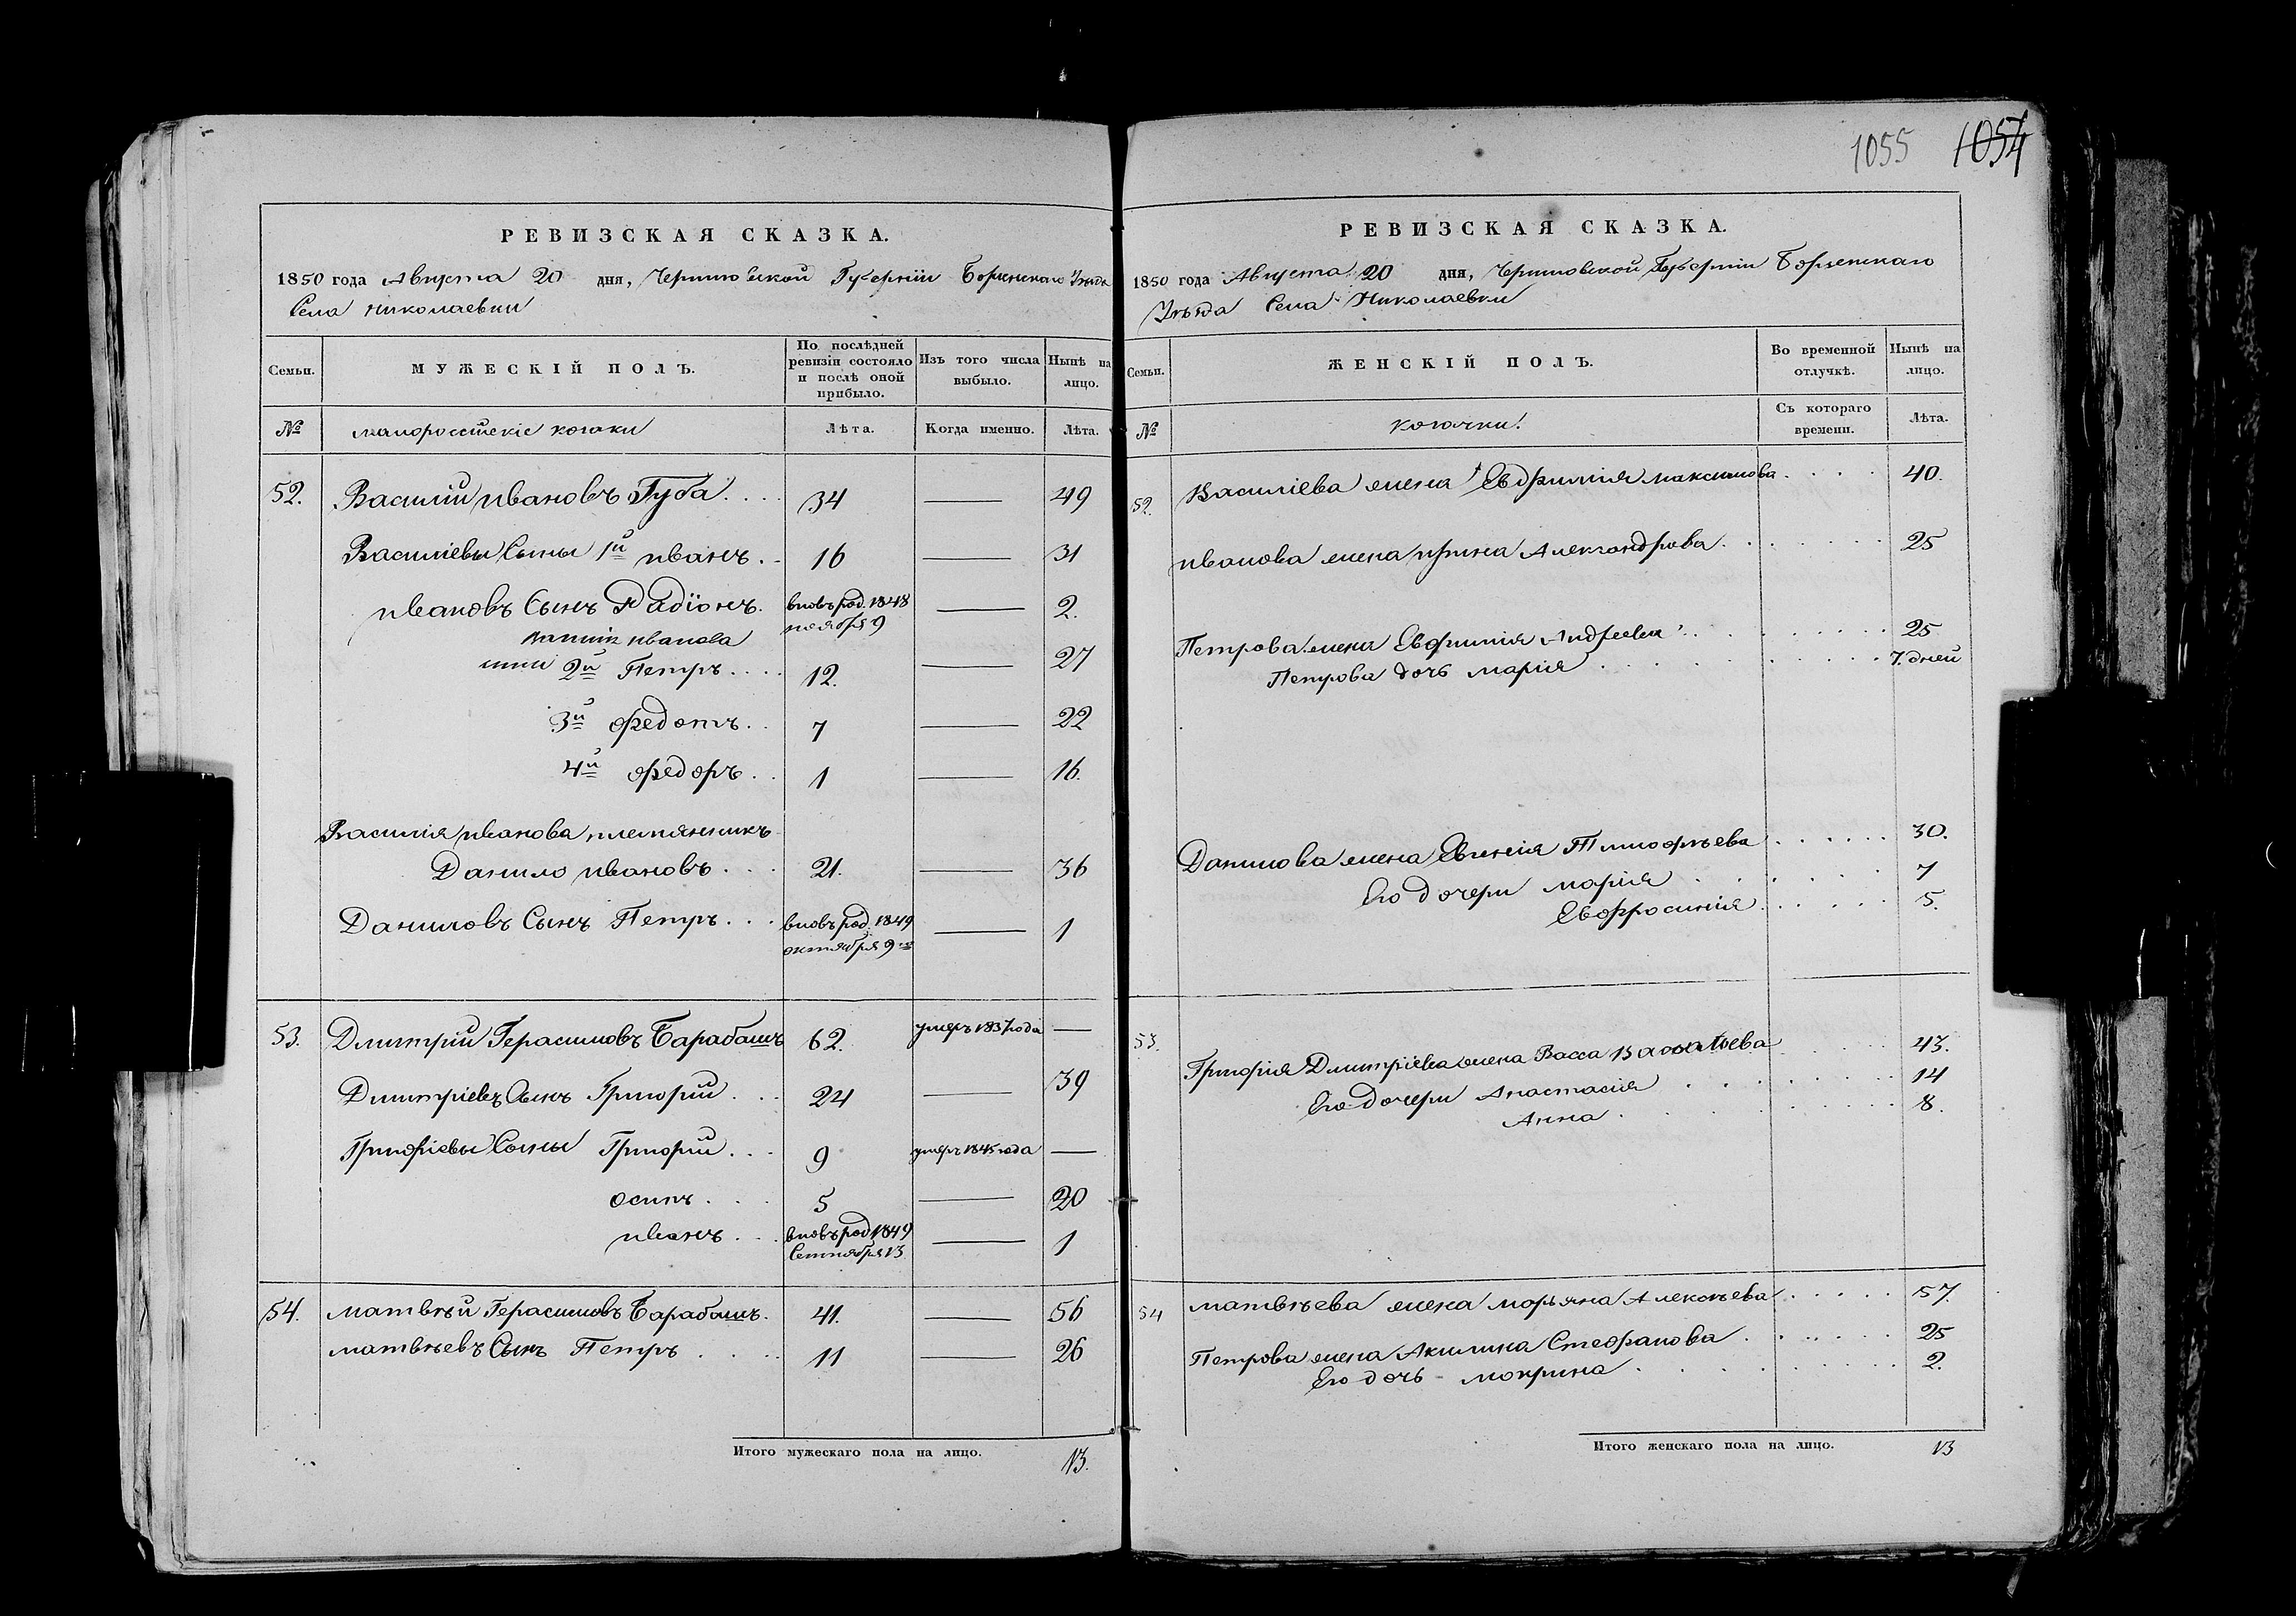 РЕВИЗСКАЯ СКАЗКА.
1850 года Августа 20 дня, Черниговской Губерніи Борзенскаго Уѣзда
Села Николаевки
Семьи. МУЖЕСКІЙ ПОЛЪ. По послѣдней ревизіи состояло и послѣ оной прибыло. Изъ того числа выбыло. Нынѣ на лицо.
№ малороссійскіе козаки Лѣта. Когда именно. Лѣта.
52. Василій Ивановъ Губа 34 — 49
Василіевы Сыны 1й Иванъ 16 — 31
Ивановъ Сынъ Радіонъ вновь род. 1848 ноября 9 — 2.
Василія Иванова
2й Петръ 12. — 27
3й Федотъ 7 — 22
4й Федоръ 1 — 16.
Василія Иванова племянникъ
Данило Ивановъ 21. — 36
Даниловъ Сынъ Петръ вновь род. 1849 октября 9го — 1
53. Дмитрій Герасимовъ Барабашъ 62. умеръ 1837 года —
Дмитріевъ Сынъ Григорій 24 — 39
Григоріевы Сыны Григорій 9 умеръ 1845 года —
Осипъ 5 — 20
Иванъ вновь род. 1849 Сентября 13 — 1
54. Матвѣй Герасимовъ Барабашъ. 41. — 56
Матвѣевъ Сынъ Петръ 11 — 26
Итого мужескаго пола на лицо. 13.
1055 1054
РЕВИЗСКАЯ СКАЗКА.
1850 года Августа 20 дня, Черниговской Губерніи Борзенскаго
Уѣзда Села Николаевки
Семьи. ЖЕНСКІЙ ПОЛЪ. Во временной отлучкѣ. Нынѣ на лицо.
№ козачки. Съ котораго времени. Лѣта.
52. Василіева жена Евфимія Максимова 40.
Иванова жена Ирина Александрова 25
Петрова жена Евфимія Андреева 25
Петрова дочь Марія 7. дней
Данилова жена Евгенія Тимофѣева 30.
Его дочери Марія 7
Евфросинія 5.
53. Григорія Дмитріева жена Васса 43.
Его дочери Анастасія 14
Анна 8.
54 Матвѣева жена Марьяна Алексѣева 57.
Петрова жена Акилина Стефанова 25
Его дочь Мокрина 2.
Итого женскаго пола на лицо. 13